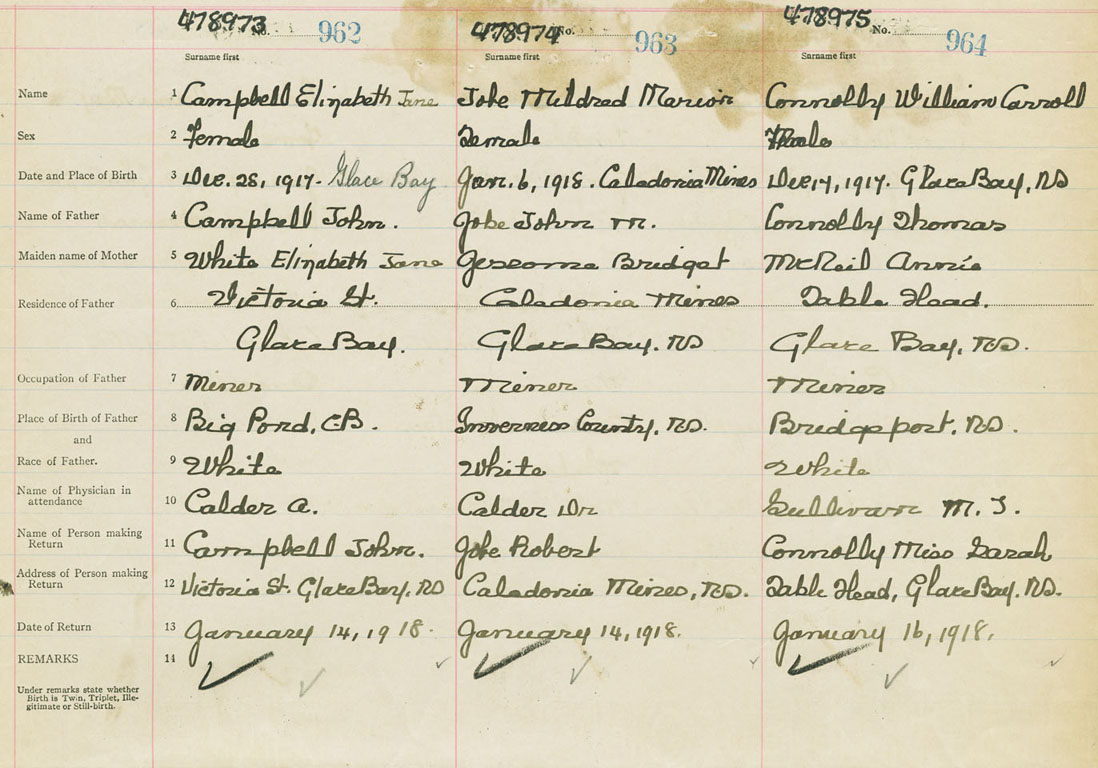 478973 No. 962 478974 No. 963 478975 No. 964
Surname first Surname first Surname first
Name 1 Campbell Elizabeth Jane Jobe Mildred Marion Connolly William Carroll
Sex 2 Female Female Male
Date and Place of Birth 3 Dec. 28, 1917. Glace Bay Jan. 6, 1918. Caledonia Mines Dec 14, 1917. Glace Bay, NS
Name of Father 4 Campbell John. Jobe John M. Connolly Thomas
Maiden name of Mother 5 White Elizabeth Jane Jessome Bridget McNeil Annie
Residence of Father 6 Victoria St. Caledonia Mines Table Head.
Glace Bay. Glace Bay. NS Glace Bay, NS.
Occupation of Father 7 Miner Miner Miner
Place of Birth of Father 8 Big Pond, C.B. Inverness County, NS. Bridgeport, NS.
and
Race of Father. 9 White White White
Name of Physician in
attendance 10 Calder A. Calder Dr Sullivan M. T.
Name of Person making
Return 11 Campbell John. Jobe Robert Connolly Miss Sarah
Address of Person making
Return 12 Victoria St. Glace Bay, NS Caledonia Mines, NS. Table Head, Glace Bay. NS.
Date of Return 13 January 14, 1918. January 14, 1918. January 16, 1918.
REMARKS 14
Under remarks state whether
Birth is Twin, Triplet, Ille-
gitimate or Still-birth.